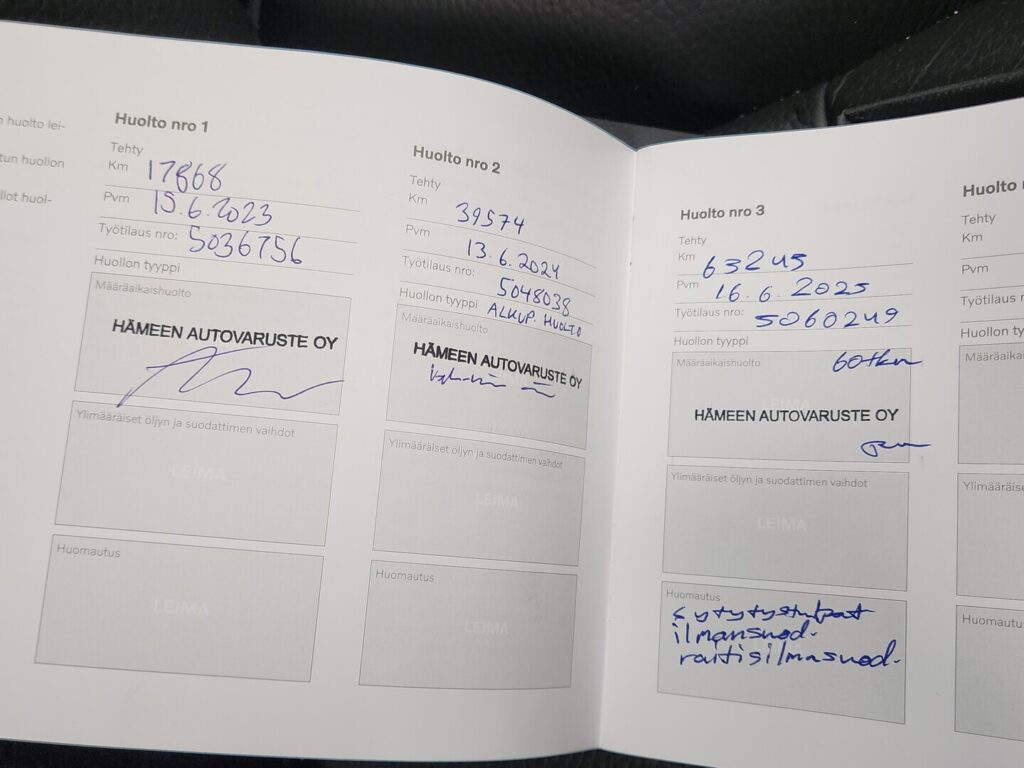 n huolto lei-
tun huollon
llot huol-
Huolto nro 1
Tehty
Km 17868
Pvm 15.6.2023
Työtilaus nro: 5036756
Huollon tyyppi
Määräaikaishuolto
HÄMEEN AUTOVARUSTE OY
Ylimääräiset öljyn ja suodattimen vaihdot
LEIMA
Huomautus
LEIMA
Huolto nro 2
Tehty
Km 39574
Pvm 13.6.2024
Työtilaus nro: 5048038
Huollon tyyppi ALKUP. HUOLTO
Määräaikaishuolto
HÄMEEN AUTOVARUSTE OY
Ylimääräiset öljyn ja suodattimen vaihdot
LEIMA
Huomautus
LEIMA
Huolto nro 3
Tehty
Km 63245
Pvm 16.6.2025
Työtilaus nro: 5060249
Huollon tyyppi
Määräaikaishuolto 60tkm
LEIMA
HÄMEEN AUTOVARUSTE OY
Ylimääräiset öljyn ja suodattimen vaihdot
LEIMA
Huomautus
sytytystulpat
ilmansuod.
raitisilmasuod.
Huolto
Tehty
Km
Pvm
Työtilaus
Huollon ty
Määräaikai
Ylimääräise
Huomautu